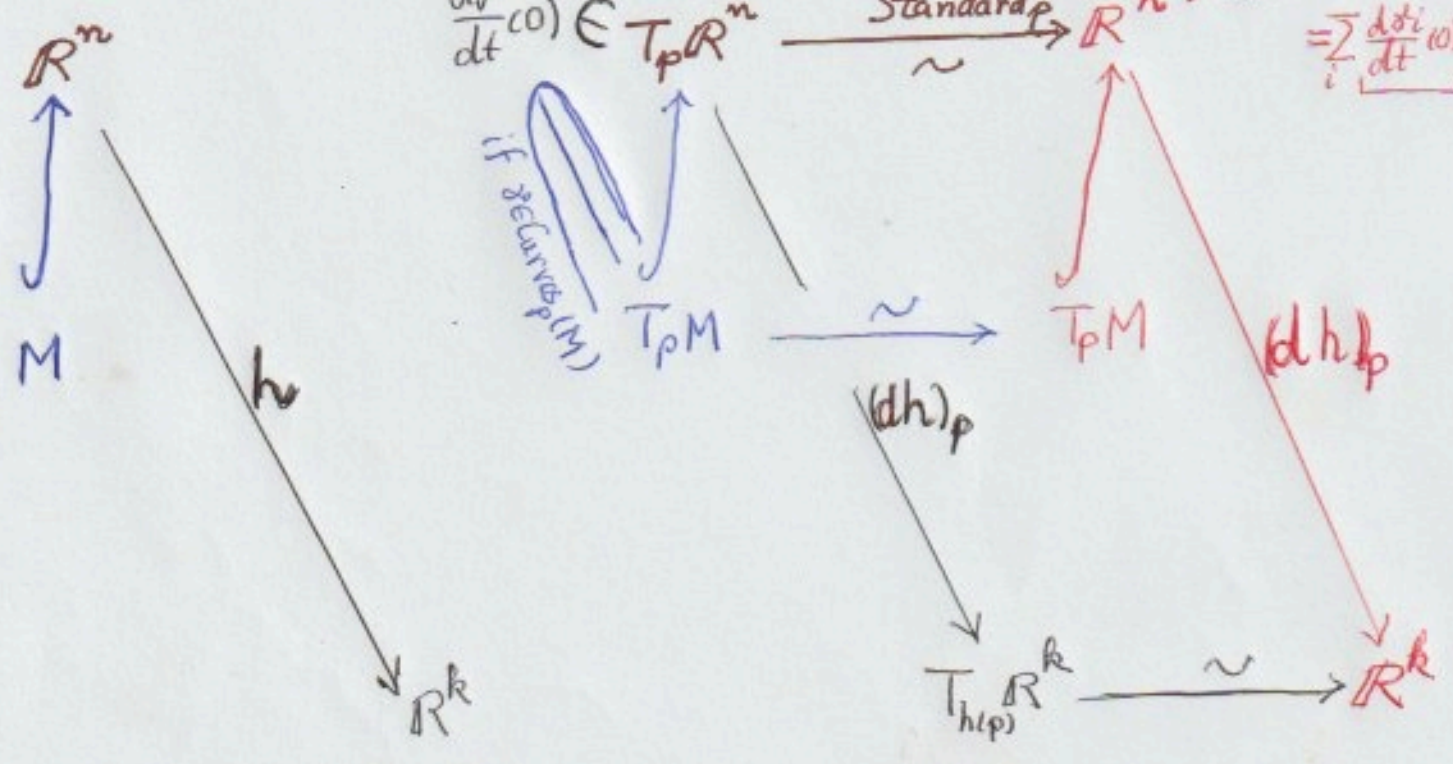 ℝⁿ
(0) ∈ Tₚℝⁿ
dt
Standardₚ
∼
ℝⁿ
=∑ dγi (0)
i dt
if γ∈Curvesₚ(M)
M
TₚM
∼
TₚM
h
(dh)ₚ
(dh)ₚ
ℝᵏ
T_h(p) ℝᵏ
∼
ℝᵏ